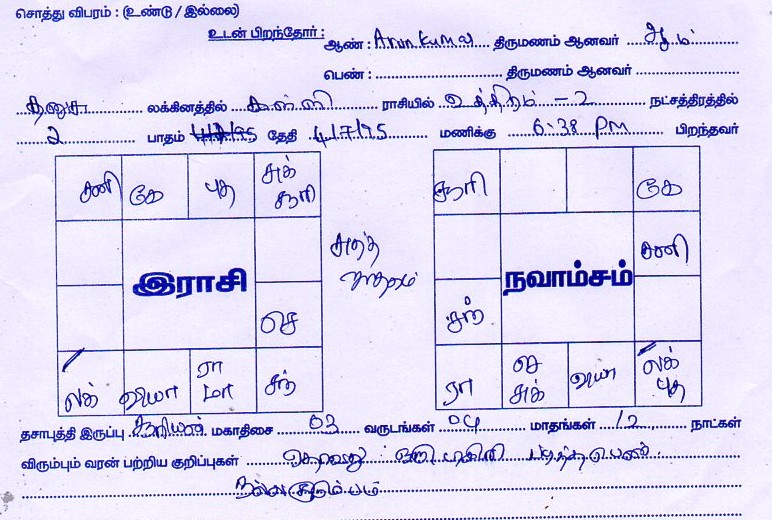 சொத்து விபரம் : (உண்டு / இல்லை)
உடன் பிறந்தோர் : ஆண் : Arun Kumar திருமணம் ஆனவர் ஆம்
பெண் : திருமணம் ஆனவர்
தனுசு லக்கினத்தில் கன்னி ராசியில் உத்திரம் - 2 நட்சத்திரத்தில்
2 பாதம் தேதி 4/7/95 மணிக்கு 6.38 PM பிறந்தவர்
சனி கே புத சுக் சூரி
சூரி கே
சுத்த ஜாதகம்
இராசி
நவாம்சம்
சனி
செ
சந்
லக் வியா ரா மா சந்
ரா செ சுக் வியா லக் புத
தசாபுத்தி இருப்பு சூரியன் மகாதிசை 03 வருடங்கள் 04 மாதங்கள் 12 நாட்கள்
விரும்பும் வரன் பற்றிய குறிப்புகள் ஏதாவது டிகிரி படித்த பெண்
நல்ல குடும்பம்